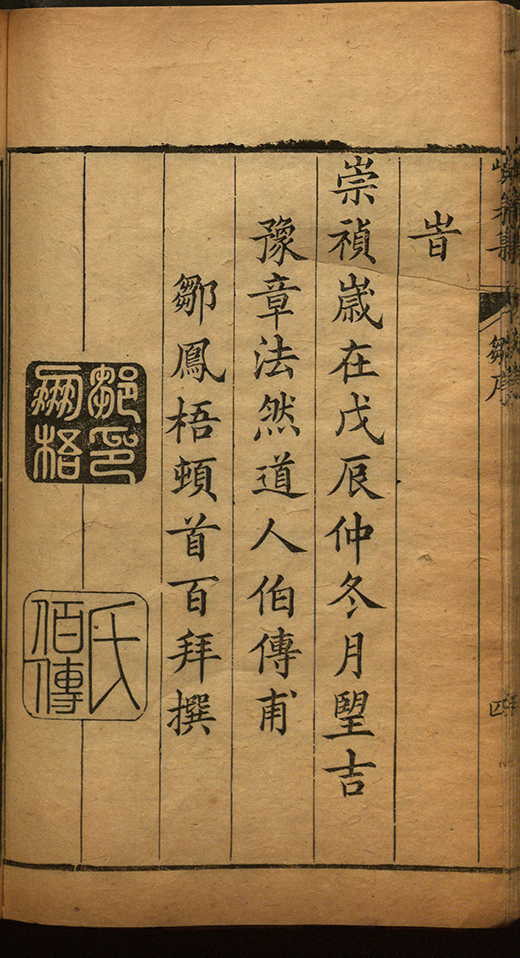 旹
崇禎嵗在戊辰仲冬月朢吉
豫章法然道人伯傳甫
鄒鳳梧頓首百拜撰
鄒印
梧
氏
伯傳
鄒序
四